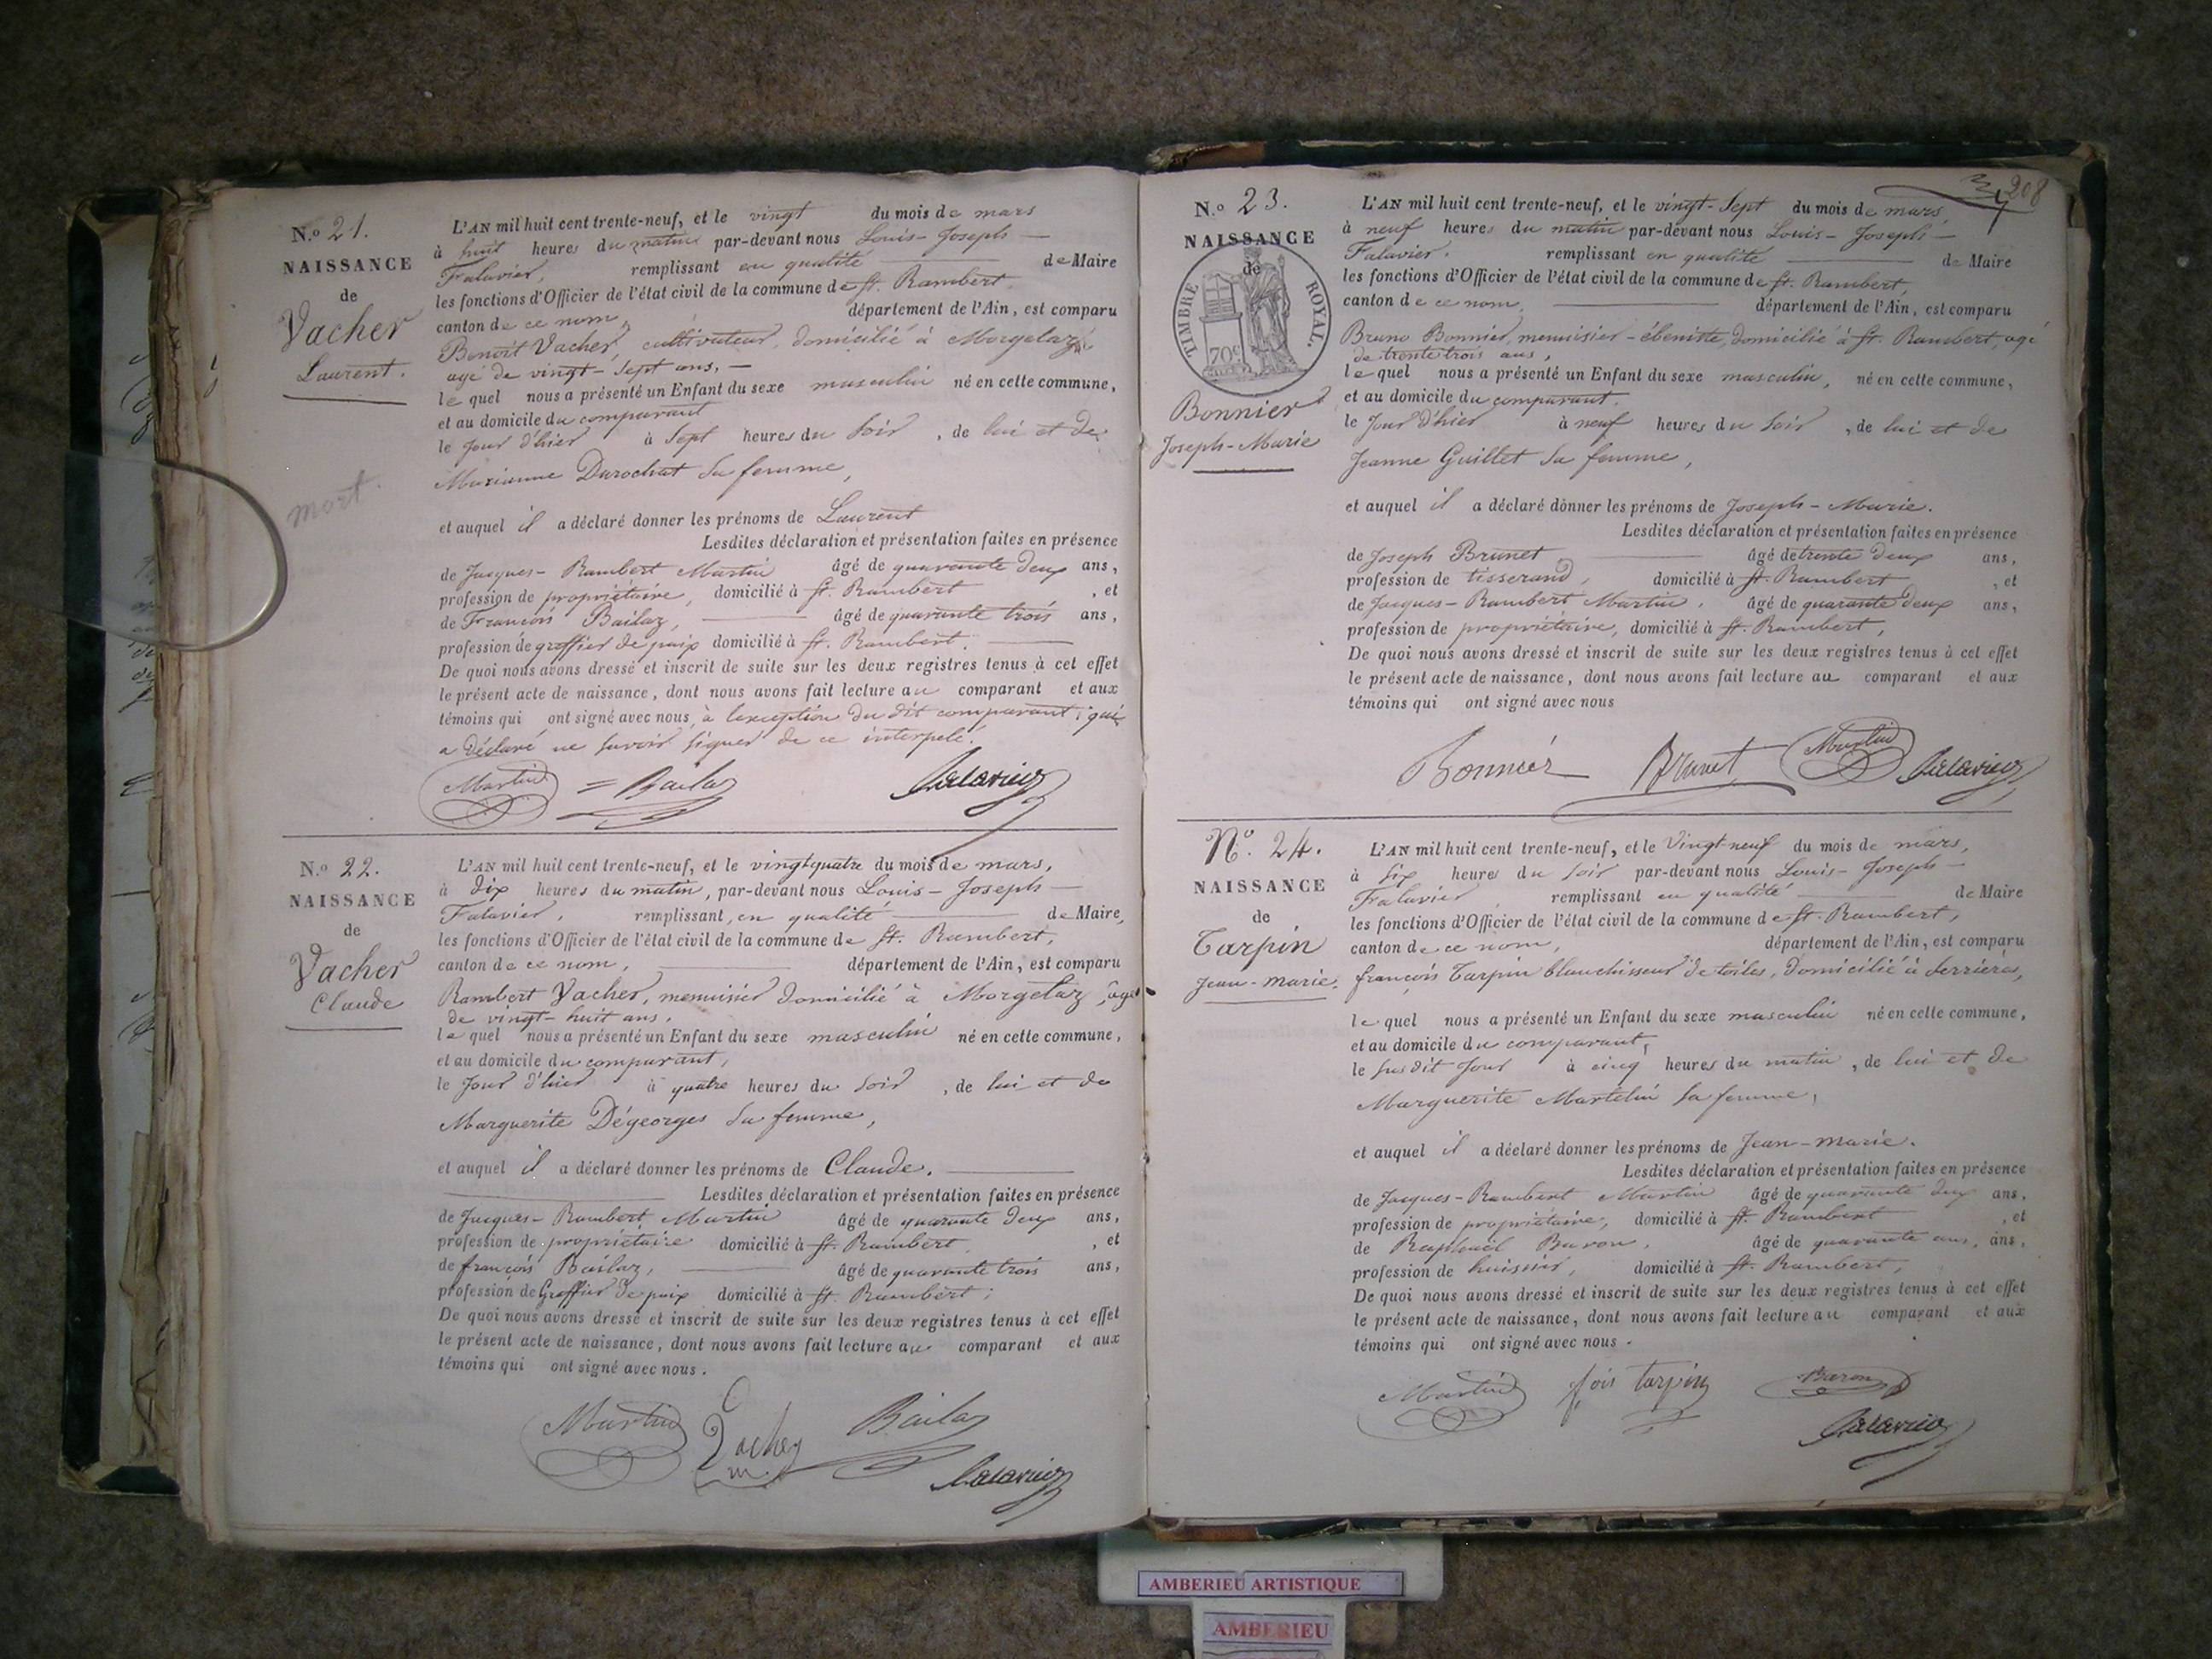 N.o 21.
NAISSANCE
de
Vacher
Laurent.
mort.
L'AN mil huit cent trente-neuf, et le vingt du mois de mars
à huit heures du matin par-devant nous Louis-Joseph
Falavier, remplissant en qualité de Maire
les fonctions d'Officier de l'état civil de la commune de St. Rambert
canton de ce nom, département de l'Ain, est comparu
Benoit Vacher, cultivateur, domicilié à Morgelaz,
agé de vingt-sept ans,
le quel nous a présenté un Enfant du sexe masculin né en cette commune,
et au domicile du comparant
le jour d'hier à sept heures du soir, de lui et de
Marianne Durochat sa femme,
et auquel il a déclaré donner les prénoms de Laurent
Lesdites déclaration et présentation faites en présence
de Jacques-Rambert Martin âgé de quarante deux ans,
profession de propriétaire, domicilié à St. Rambert, et
de François Bailaz, âgé de quarante trois ans,
profession de greffier de paix domicilié à St. Rambert.
De quoi nous avons dressé et inscrit de suite sur les deux registres tenus à cet effet
le présent acte de naissance, dont nous avons fait lecture au comparant et aux
témoins qui ont signé avec nous, à l'exception du dit comparant; qui
a déclaré ne savoir signer de ce interpelé.
Martin Bailaz Falavier
N.o 22.
NAISSANCE
de
Vacher
Claude
L'AN mil huit cent trente-neuf, et le vingt quatre du mois de mars,
à dix heures du matin, par-devant nous Louis-Joseph
Falavier, remplissant, en qualité de Maire,
les fonctions d'Officier de l'état civil de la commune de St. Rambert,
canton de ce nom, département de l'Ain, est comparu
Rambert Vacher, menuisier domicilié à Morgelaz, agé
de vingt-huit ans,
le quel nous a présenté un Enfant du sexe masculin né en cette commune,
et au domicile du comparant,
le jour d'hier à quatre heures du soir, de lui et de
Marguerite Dégeorges sa femme,
et auquel il a déclaré donner les prénoms de Claude.
Lesdites déclaration et présentation faites en présence
de Jacques-Rambert Martin âgé de quarante deux ans,
profession de propriétaire domicilié à St. Rambert, et
de françois Bailaz, âgé de quarante trois ans,
profession de Greffier de paix domicilié à St. Rambert;
De quoi nous avons dressé et inscrit de suite sur les deux registres tenus à cet effet
le présent acte de naissance, dont nous avons fait lecture au comparant et aux
témoins qui ont signé avec nous.
Martin Vacher Bailaz
Falavier
208
N.o 23.
NAISSANCE
de
TIMBRE ROYAL.
70c
Bonnier
Joseph-Marie
L'AN mil huit cent trente-neuf, et le vingt-sept du mois de mars,
à neuf heures du matin par-devant nous Louis-Joseph
Falavier, remplissant en qualité de Maire
les fonctions d'Officier de l'état civil de la commune de St. Rambert,
canton de ce nom, département de l'Ain, est comparu
Bruno Bonnier, menuisier-ébeniste, domicilié à St. Rambert, agé
de trente trois ans,
le quel nous a présenté un Enfant du sexe masculin, né en cette commune,
et au domicile du comparant.
le jour d'hier à neuf heures du soir, de lui et de
Jeanne Guillet sa femme,
et auquel il a déclaré donner les prénoms de Joseph-Marie.
Lesdites déclaration et présentation faites en présence
de Joseph Brunet âgé de trente deux ans,
profession de tisserand, domicilié à St. Rambert, et
de Jacques-Rambert Martin, âgé de quarante deux ans,
profession de propriétaire, domicilié à St. Rambert,
De quoi nous avons dressé et inscrit de suite sur les deux registres tenus à cet effet
le présent acte de naissance, dont nous avons fait lecture au comparant et aux
témoins qui ont signé avec nous
Bonnier Brunet Martin Falavier
No. 24.
NAISSANCE
de
Tarpin
Jean-marie.
L'AN mil huit cent trente-neuf, et le Vingt-neuf du mois de mars,
à six heures du soir par-devant nous Louis-Joseph
Falavier remplissant en qualité de Maire
les fonctions d'Officier de l'état civil de la commune de St. Rambert,
canton de ce nom, département de l'Ain, est comparu
françois Tarpin blanchisseur de toiles, domicilié à Serrières,
le quel nous a présenté un Enfant du sexe masculin né en cette commune,
et au domicile du comparant,
le susdit jour à cinq heures du matin, de lui et de
Marguerite Martelin sa femme,
et auquel il a déclaré donner les prénoms de Jean-marie.
Lesdites déclaration et présentation faites en présence
de Jacques-Rambert Martin âgé de quarante deux ans,
profession de propriétaire, domicilié à St. Rambert, et
de Raphaël Baron, âgé de quarante ans, ans,
profession de huissier, domicilié à St. Rambert,
De quoi nous avons dressé et inscrit de suite sur les deux registres tenus à cet effet
le présent acte de naissance, dont nous avons fait lecture au comparant et aux
témoins qui ont signé avec nous.
Martin fois tarpin Baron
Falavier
AMBERIEU ARTISTIQUE
AMBERIEU